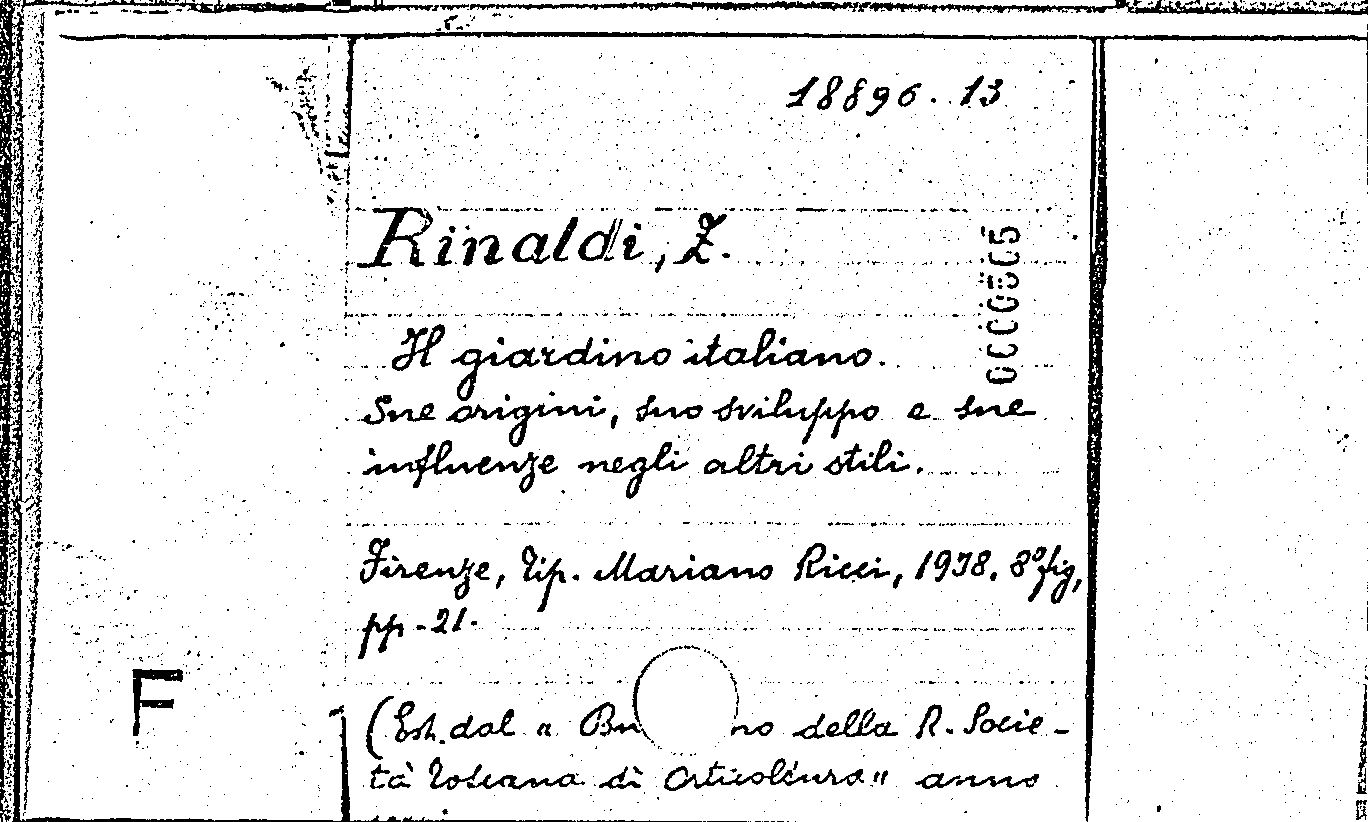 18896.13
Rinaldi, Z.
0000505
Il giardino italiano.
Sue origini, suo sviluppo e sue
influenze negli altri stili.
Firenze, Tip. Mariano Ricci, 1938. 8° fig,
pp. 21.
F
(Est. dal " Bu no della R. Socie-
tà Toscana di Orticoltura" anno